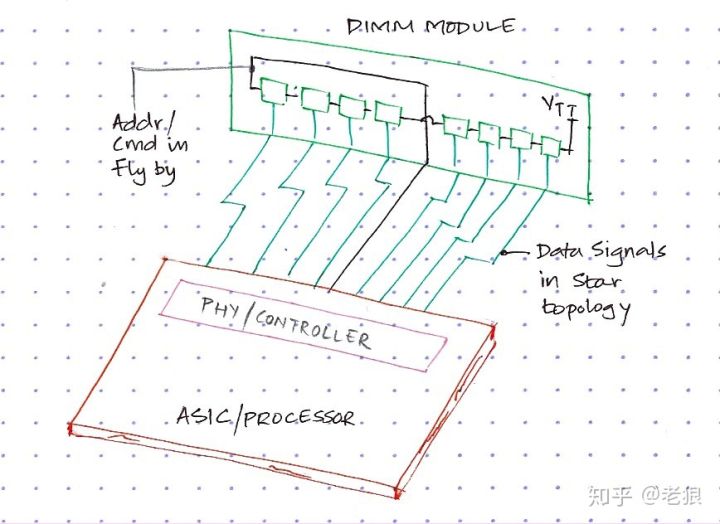 DIMM MODULE
VTT
Addr/
Cmd in
Fly by
Data Signals
in Star
topology
PHY/CONTROLLER
ASIC/PROCESSOR
知乎 @老狼